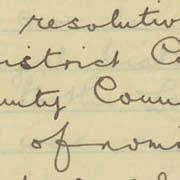 resolutio
istrict Co
unty Coun
of nomi